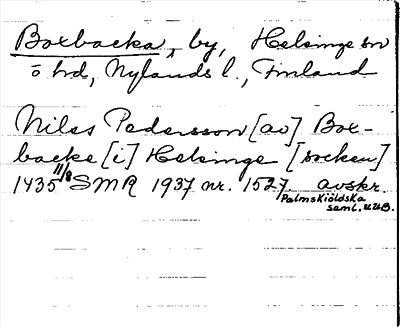 Boxbacka, by, Helsinge sn
o hd, Nylands l., Finland
Nilss Pedersson [av] Box-
backe [i] Helsinge [socken]
1435 11/8 SMR 1937 nr. 1527. avskr.
Palmskiöldska
saml. UUB.